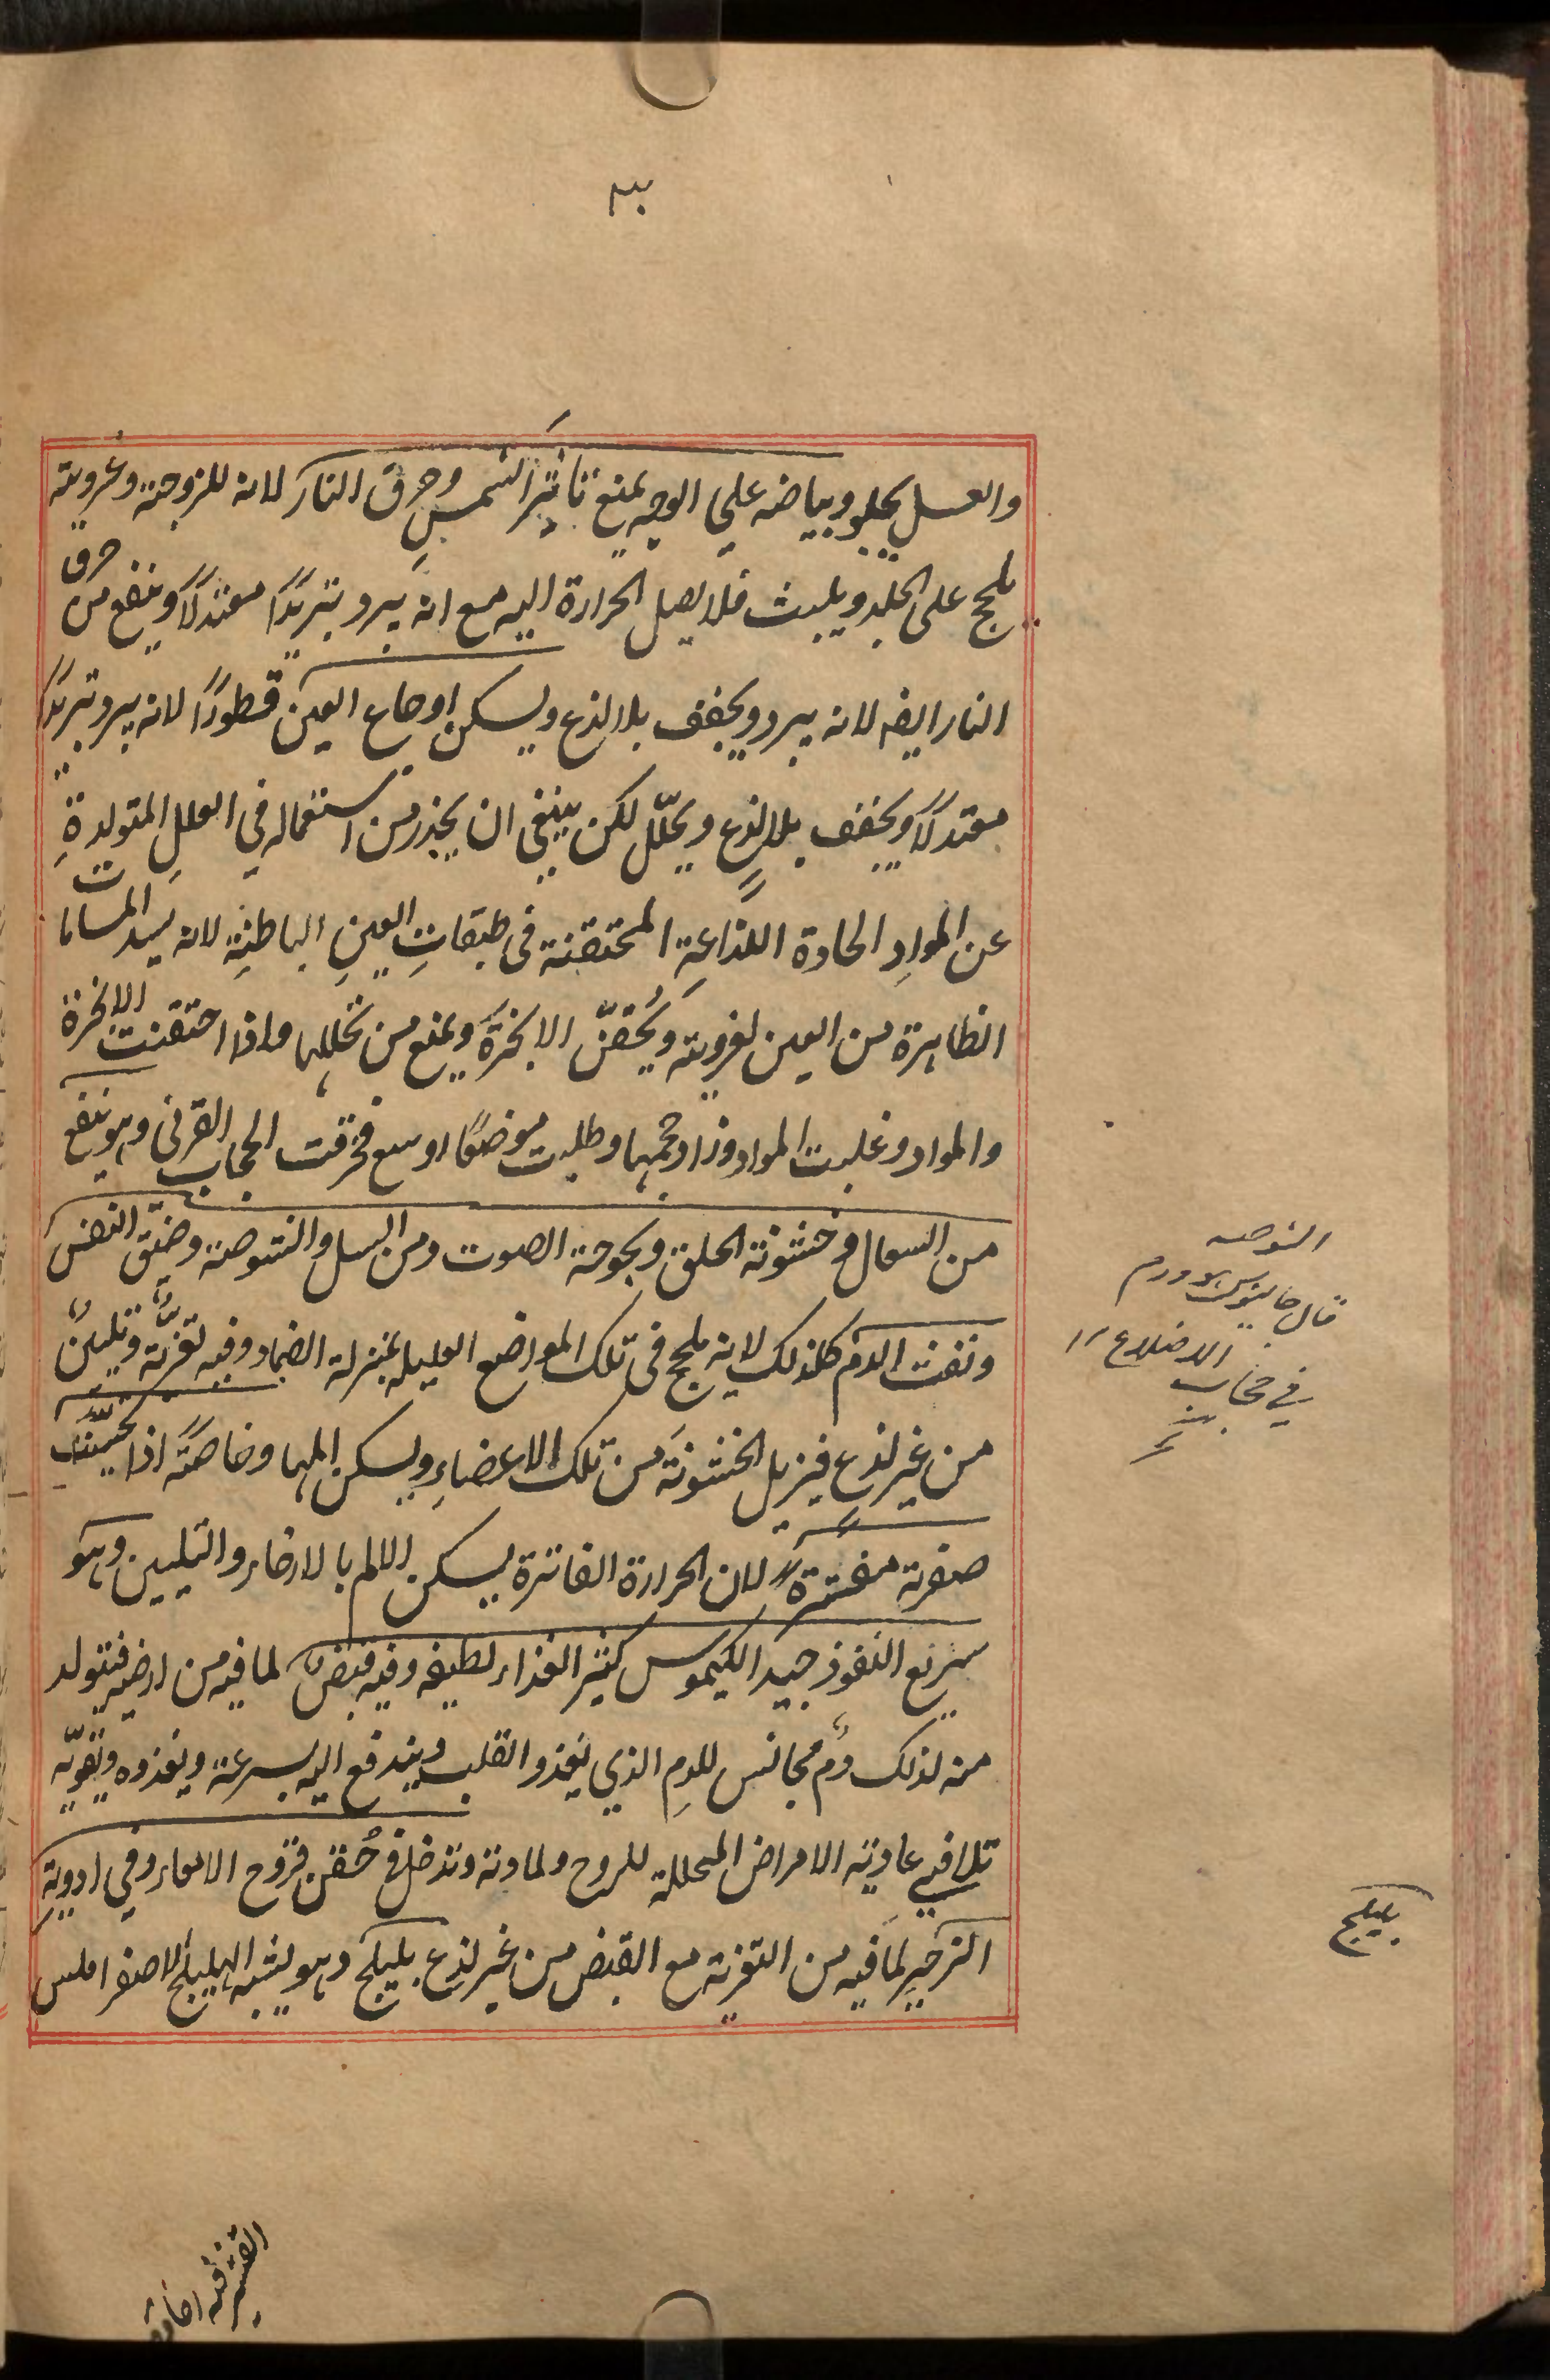 والعسل يجلو وبياضه علي الوجه يمنع تاثير الشمسِ وحرق النار لانه للزوجته وغرويته
يلحج على الجلد ويلبث فلا يصل الحرارة اليه مع انه يبرد تبريدًا معتدلًا وينفع من حرق
النار ايضه لانه يبرد ويجفف بلا لذع ويسكن اوجاع العين قطورًا لانه يبرد تبريدًا
معتدلًا ويجفف بلا لذعٍ ويحلّل لكن ينبغي ان يحذر من استعماله في العللِ المتولدةِ
عن الموادِ الحادة اللذاعةِ المحتقنة فى طبقاتِ العينِ الباطنةِ لانه يسد المسامات
الظاهرة من العين لغرويته ويُحقنّ الابخرةَ ويمنع من تحللها واذا احتقنت الابخرة
والمواد وغلبت المواد وزاد حجمها وطلبت موضعًا اوسع فخرقت الحجاب القرنى وهو ينفع
من السعال وخشونة الحلق وبحوحة الصوت ومن السل والشوصة وضيق النفس
ونفث الدم كلذلك لانه يلحج فى تلك المواضع العليله بمنزلة الضماد وفيه تغريةٌ وتليينٌ
من غير لذع فيزيل الخشونةَ من تلك الاعضاءِ ويسكن المها وخاصةً اذا تحسّيت
صفرته مفترةً لان الحرارة الفاترة يسكن الالم بالارخاء والتليين وهو
سريع النفوذ جيد الكيموس كثير الغذاء لطيفه وفيه قبضٌ لما فيه من ارضيه فيتولد
منه لذلك دمٌ مجانس للدمِ الذي يَغذو القلب ويندفع اليه بسرعة ويغذوه ويقويّه
تلافي عادية الامراض المحللة للروح ولمادته وتدخل في حُقن قروح الامعاء وفي ادويةِ
الزحيرِ لما فيه من التغرية مع القبض من غير لذع بليلج وهو يشبه الهليلج الاصفر املس
الشوصه
قال جالينوس هو ورم
في حجاب الاضلاع
بليلج
القشر فيه